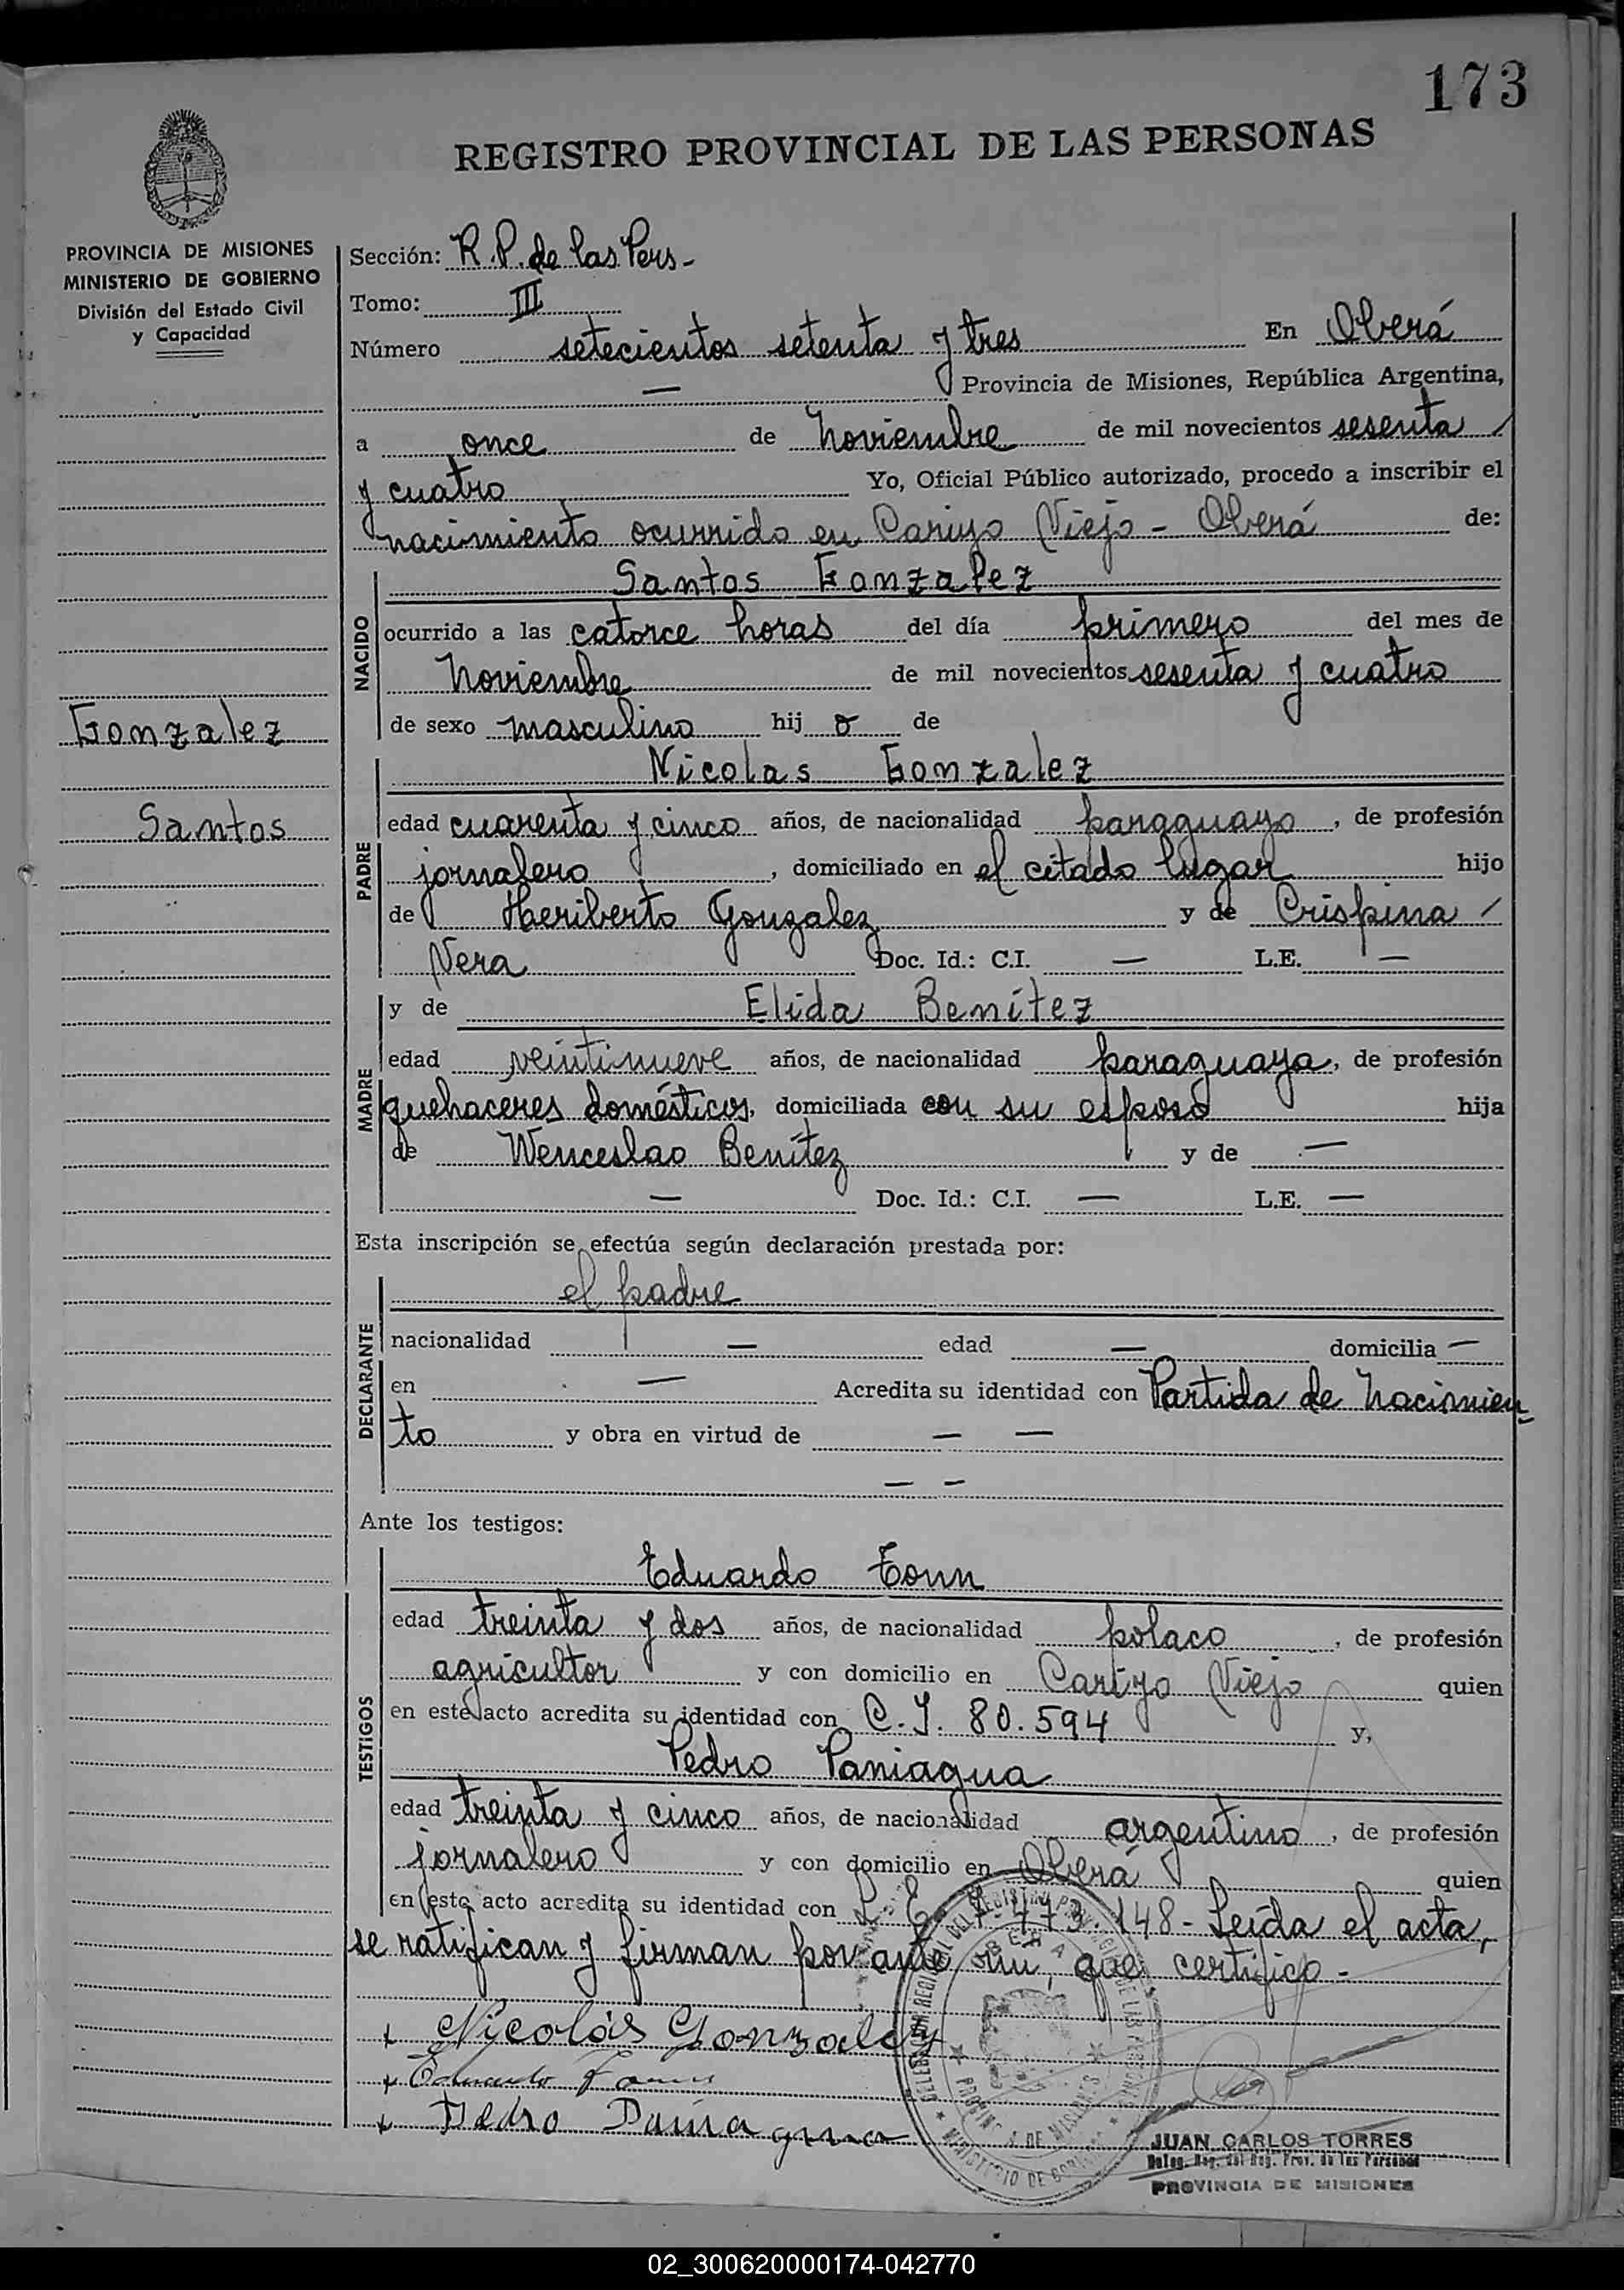 173
REGISTRO PROVINCIAL DE LAS PERSONAS
PROVINCIA DE MISIONES
MINISTERIO DE GOBIERNO
División del Estado Civil
y Capacidad
Gonzalez
Santos
Sección: R.P. de las Pers-
Tomo: III
Número setecientos setenta y tres En Oberá
— Provincia de Misiones, República Argentina,
a once de Noviembre de mil novecientos sesenta
y cuatro Yo, Oficial Público autorizado, procedo a inscribir el
nacimiento ocurrido en Cariyo Viejo - Oberá de:
NACIDO
Santos Gonzalez
ocurrido a las catorce horas del día primero del mes de
Noviembre de mil novecientos sesenta y cuatro
de sexo masculino hij o de
PADRE
Nicolas Gonzalez
edad cuarenta y cinco años, de nacionalidad paraguayo, de profesión
jornalero, domiciliado en el citado lugar hijo
de Heriberto Gonzalez y de Crispina
Vera Doc. Id.: C.I. — L.E. —
MADRE
y de Elida Benítez
edad veintinueve años, de nacionalidad paraguaya, de profesión
quehaceres domésticos, domiciliada con su esposo hija
de Wenceslao Benítez y de —
— Doc. Id.: C.I. — L.E. —
Esta inscripción se efectúa según declaración prestada por:
DECLARANTE
el padre
nacionalidad — edad — domicilia —
en — Acredita su identidad con Partida de Nacimien-
to y obra en virtud de — —
— —
Ante los testigos:
TESTIGOS
Eduardo Tonn
edad treinta y dos años, de nacionalidad polaco, de profesión
agricultor y con domicilio en Cariyo Viejo quien
en este acto acredita su identidad con C.I. 80.594 y,
Pedro Paniagua
edad treinta y cinco años, de nacionalidad argentino, de profesión
jornalero y con domicilio en Oberá quien
en este acto acredita su identidad con L.E. 7.473.148- Leída el acta,
se ratifican y firman por ante mi, que certifico-
x Nicolás Gonzalez
x Eduardo Tonn
x Pedro Paniagua
JUAN CARLOS TORRES
Deleg. Reg. del Reg. Prov. de las Personas
PROVINCIA DE MISIONES
02_300620000174-042770